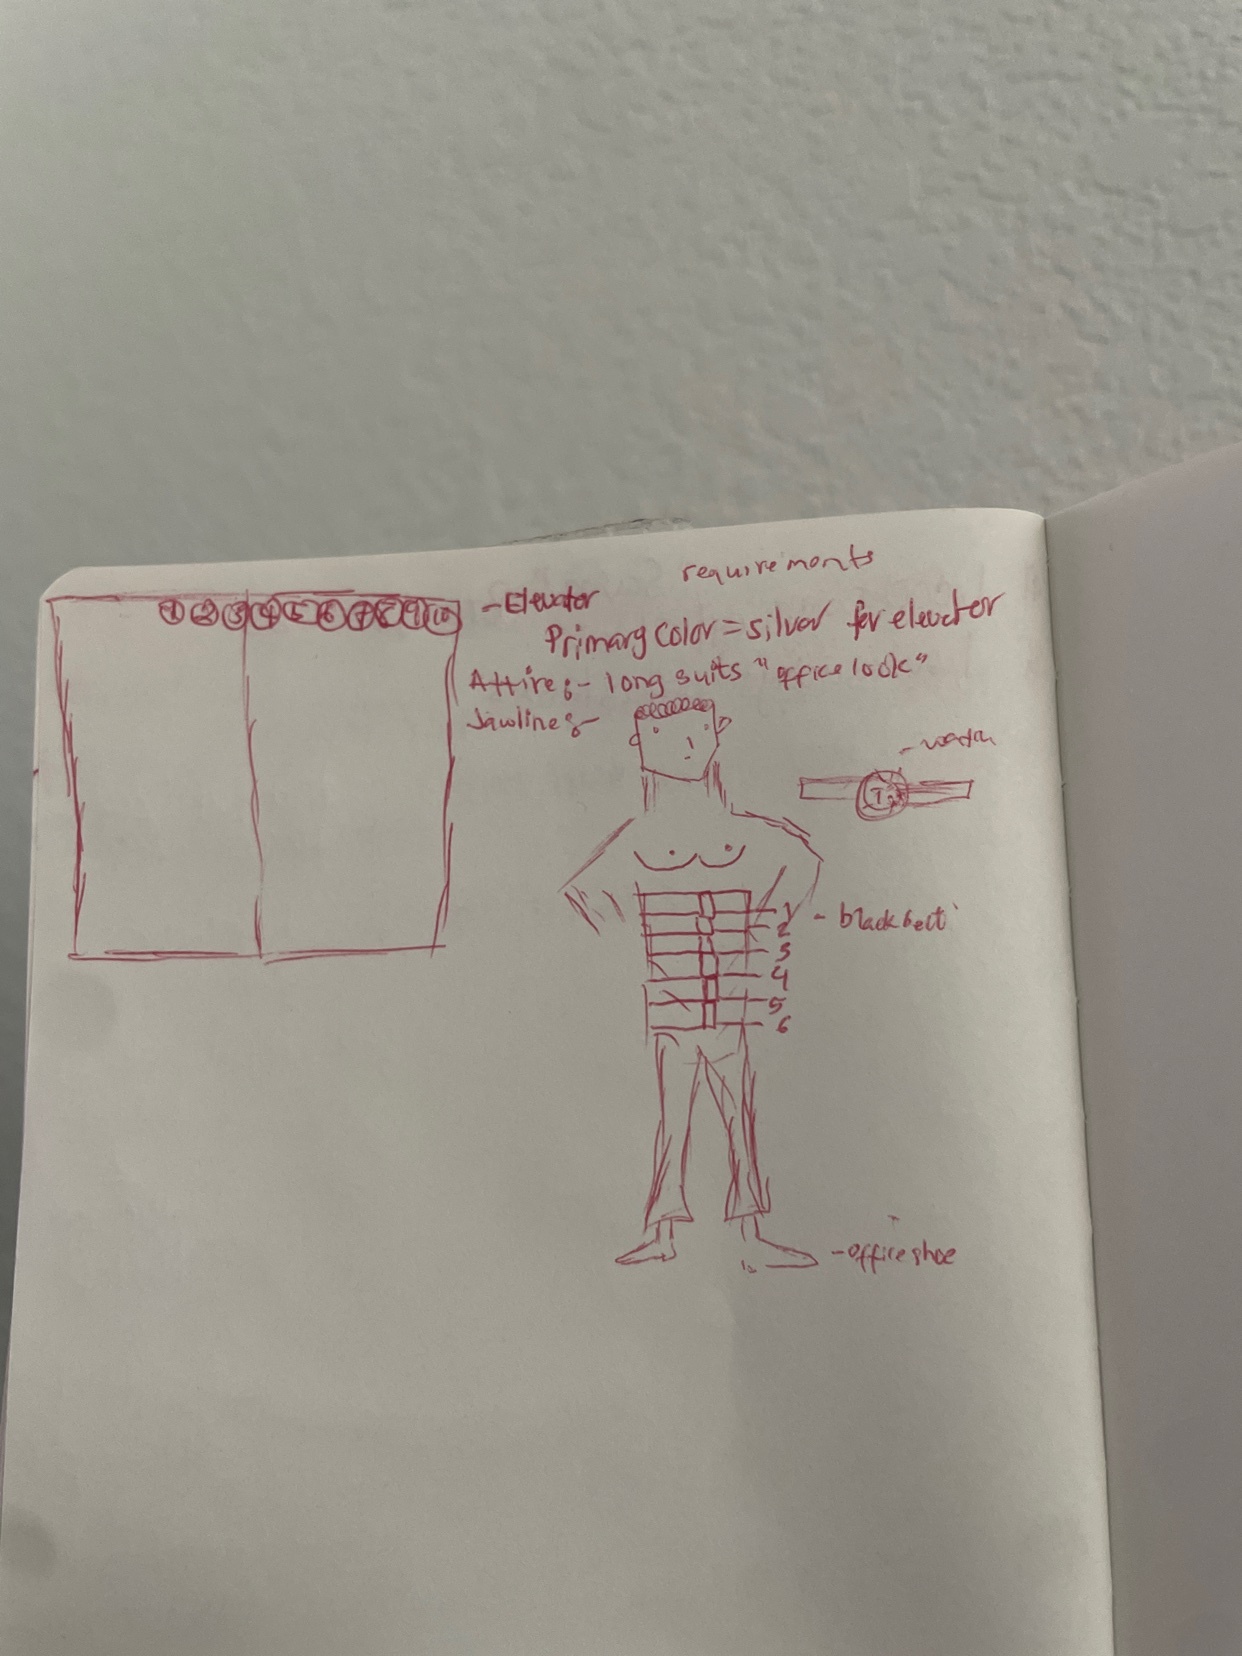 requirements
1 2 3 4 5 6 7 8 9 10
-Elevator
Primary color = silver for elevator
Attire:- long suits "office look"
Jawline:-
- watch
1 - black belt
2
3
4
5
6
- office shoe